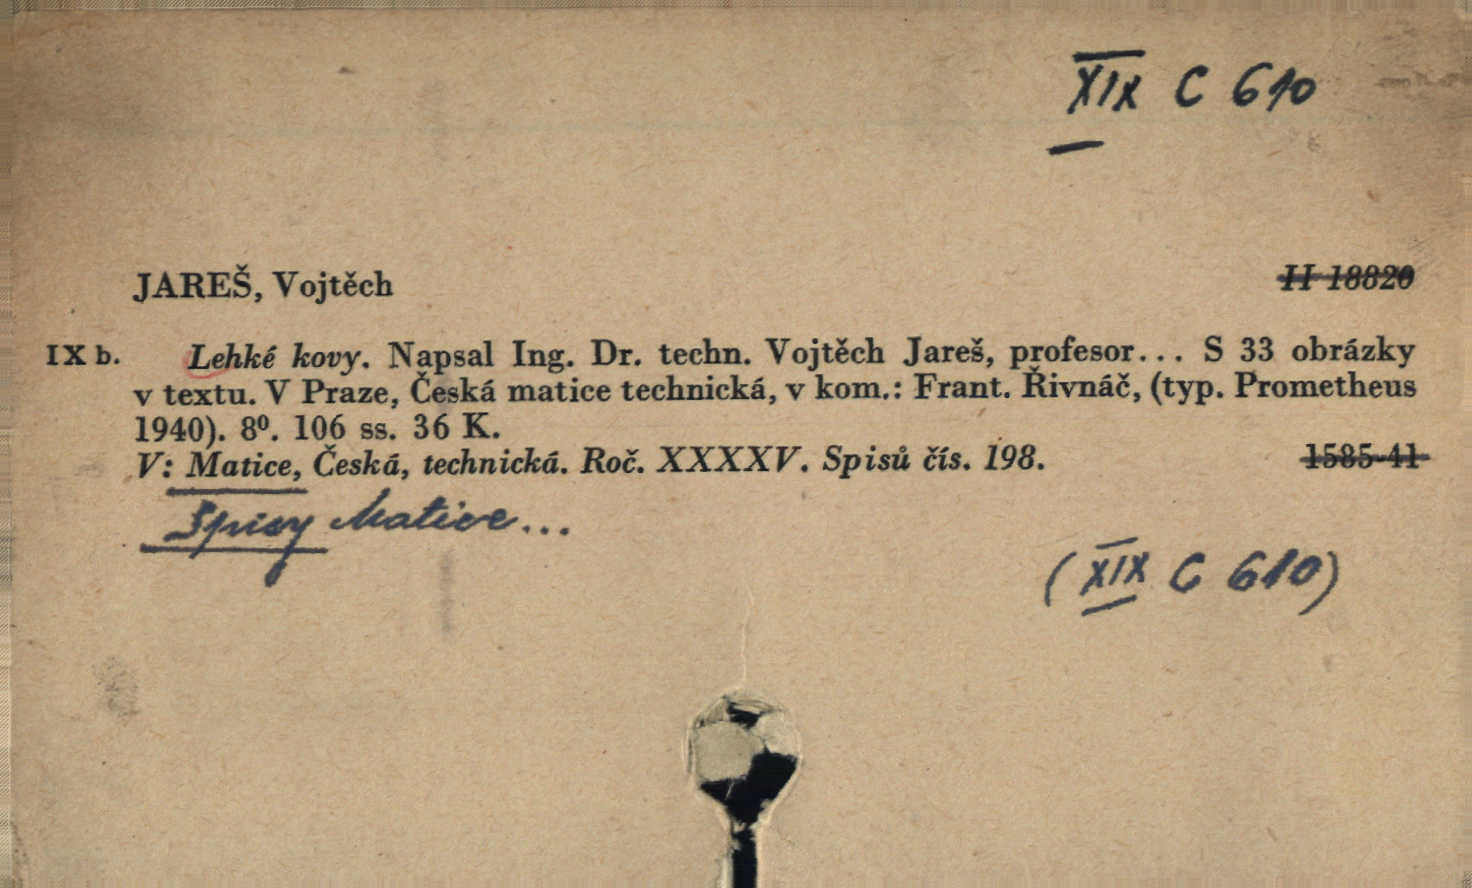 XIX C 610
JAREŠ, Vojtěch
II 18820
IX b. Lehké kovy. Napsal Ing. Dr. techn. Vojtěch Jareš, profesor... S 33 obrázky
v textu. V Praze, Česká matice technická, v kom.: Frant. Řivnáč, (typ. Prometheus
1940). 8⁰. 106 ss. 36 K.
V: Matice, Česká, technická. Roč. XXXXV. Spisů čís. 198.
1585-41
Spisy Matice...
(XIX C 610)